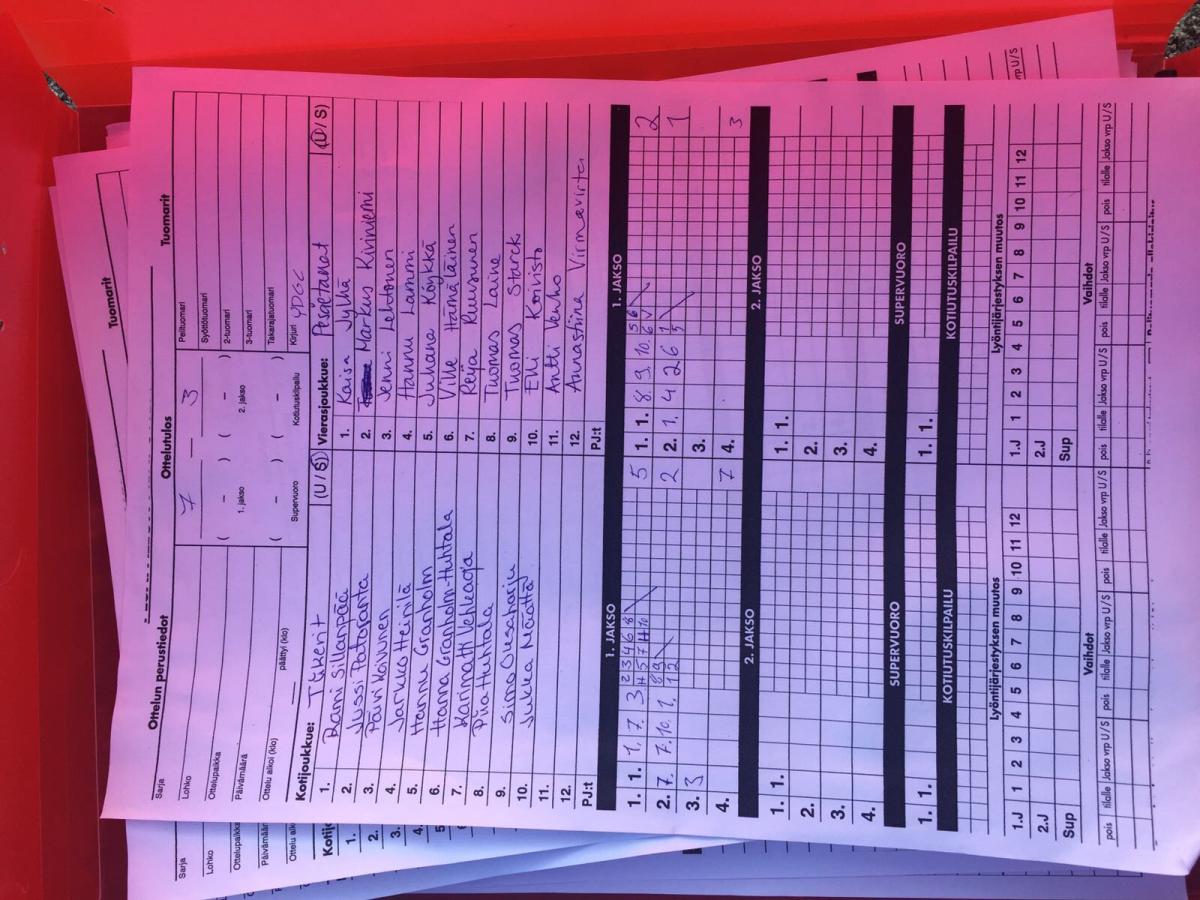 Tuomarit
Ottelun perustiedot
Ottelutulos
Tuomarit
Sarja
Lohko
Ottelupaikka
Päivämäärä
Ottelu alkoi (klo)
päättyi (klo)
7 – 3
( – ) ( – )
1. jakso 2. jakso
( – ) ( – )
Supervuoro Kotiutuskilpailu
Pelituomari
Syöttötuomari
2-tuomari
3-tuomari
Takarajatuomari
Kirjuri YPGC
Kotijoukkue: Tikkerit (U / S)
1. Rami Sillanpää
2. Jussi Patojanta
3. Päivi Koivunen
4. Jarkko Heinilä
5. Hannu Granholm
6. Hanna Granholm-Huhtala
7. Karimatti Vehkaoja
8. Piia Huhtala
9. Simo Ojesaharju
10. Jukka Määttä
11.
12.
PJ:t
Vierasjoukkue: Pesäpetanat (U / S)
1. Kaisa Jylhä
2. Markus Kiviniemi
3. Jenni Lehtonen
4. Hannu Lammi
5. Juhana Köykkä
6. Ville Hämäläinen
7. Reija Ruusunen
8. Tuomas Laine
9. Tuomas Starck
10. Elli Koivisto
11. Antti Venho
12. Annastiina Virmavirta
PJ:t
1. JAKSO
1. JAKSO
1. 1. 1, 7. 3 2 3 4 6 8 5
4 5 7 H 10
2. 7. 7. 10. 1. 8 9 2
1 2
3. 3
4. 7
1. 1. 8. 9. 10. 5 6 2
6
2. 1. 4 2 6 1 1
5
3.
4. 3
2. JAKSO
2. JAKSO
1. 1.
2.
3.
4.
1. 1.
2.
3.
4.
SUPERVUORO
SUPERVUORO
1. 1.
1. 1.
KOTIUTUSKILPAILU
KOTIUTUSKILPAILU
Lyöntijärjestyksen muutos
Lyöntijärjestyksen muutos
1.J 1 2 3 4 5 6 7 8 9 10 11 12
2.J
Sup
1.J 1 2 3 4 5 6 7 8 9 10 11 12
2.J
Sup
Vaihdot
Vaihdot
pois tilalle Jakso vrp U/S pois tilalle Jakso vrp U/S pois tilalle Jakso vrp U/S
pois tilalle Jakso vrp U/S pois tilalle Jakso vrp U/S pois tilalle Jakso vrp U/S
Sarja
Lohko
Ottelupaikka
Päivämäär
Ottelu alk
Kotijo
1.
2.
3.
4.
5
vrp U/S